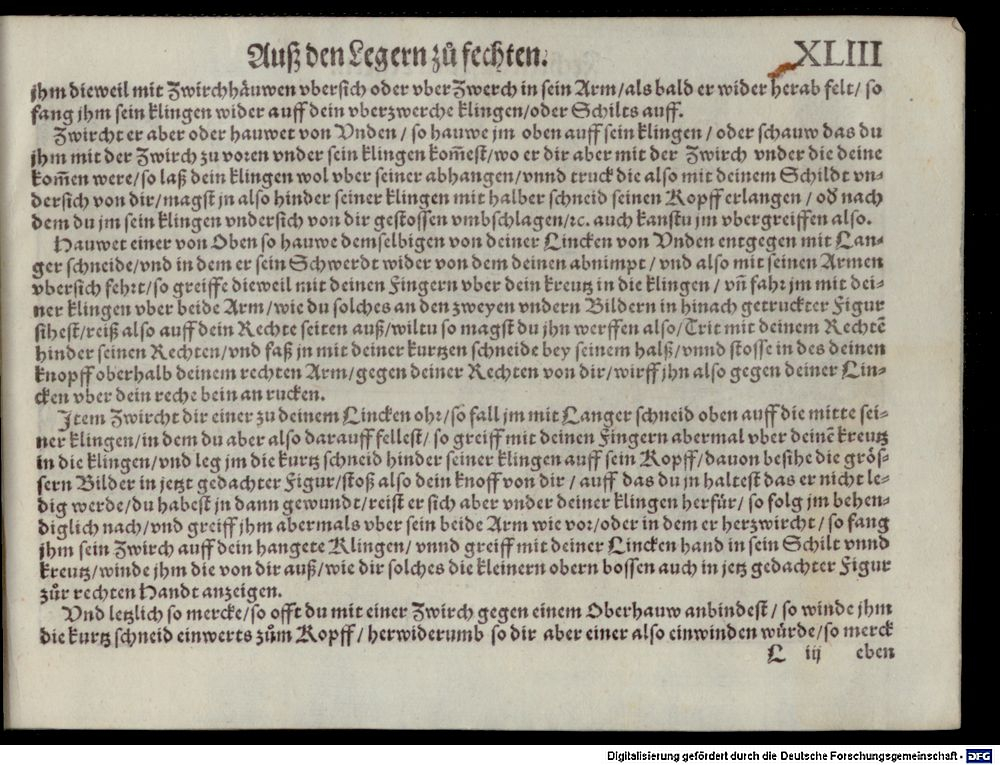 Auß den Legern zů fechten.
XLIII
jhm dieweil mit Zwirchhäuwen vbersich oder vber Zwerch in sein Arm/als bald er wider herab felt/ so
fang jhm sein klingen wider auff dein vberzwerche klingen/oder Schilts auff.
Zwircht er aber oder hauwet von Vnden / so hauwe jm oben auff sein klingen / oder schauw das du
jhm mit der Zwirch zu voren vnder sein klingen kom̄est/wo er dir aber mit der Zwirch vnder die deine
kom̄en were/so laß dein klingen wol vber seiner abhangen/vnnd truck die also mit deinem Schildt vn⸗
dersich von dir/magst jn also hinder seiner klingen mit halber schneid seinen Kopff erlangen / od̕ nach
dem du jm sein klingen vndersich von dir gestossen vmbschlagen/ꝛc. auch kanstu jm vbergreiffen also.
Hauwet einer von Oben so hauwe demselbigen von deiner Lincken von Vnden entgegen mit Lan⸗
ger schneide/vnd in dem er sein Schwerdt wider von dem deinen abnimpt / vnd also mit seinen Armen
vbersich fehrt/so greiffe dieweil mit deinen Fingern vber dein kreutz in die klingen / vn̄ fahr jm mit dei⸗
ner klingen vber beide Arm/wie du solches an den zweyen vndern Bildern in hinach getruckter Figur
sihest/reiß also auff dein Rechte seiten auß/wiltu so magst du jhn werffen also/Trit mit deinem Rechtē
hinder seinen Rechten/vnd faß jn mit deiner kurtzen schneide bey seinem halß/vnnd stosse in des deinen
knopff oberhalb deinem rechten Arm/gegen deiner Rechten von dir/wirff jhn also gegen deiner Lin⸗
cken vber dein reche bein an rucken.
Item Zwircht dir einer zu deinem Lincken ohr/so fall jm mit Langer schneid oben auff die mitte sei⸗
ner klingen/in dem du aber also darauff fellest/ so greiff mit deinen Fingern abermal vber deinē kreutz
in die klingen/vnd leg jm die kurtz schneid hinder seiner klingen auff sein Kopff/dauon besihe die grös⸗
sern Bilder in jetzt gedachter Figur/stoß also dein knoff von dir / auff das du jn haltest das er nicht le⸗
dig werde/du habest jn dann gewundt/reist er sich aber vnder deiner klingen herfür/ so folg jm behen⸗
diglich nach/vnd greiff jhm abermals vber sein beide Arm wie vor/oder in dem er herzwircht/ so fang
jhm sein Zwirch auff dein hangete Klingen/ vnnd greiff mit deiner Lincken hand in sein Schilt vnnd
kreutz/winde jhm die von dir auß/wie dir solches die kleinern obern bossen auch in jetz gedachter Figur
zůr rechten Handt anzeigen.
Vnd letzlich so mercke/so offt du mit einer Zwirch gegen einem Oberhauw anbindest/ so winde jhm
die kurtz schneid einwerts zům Kopff/ herwiderumb so dir aber einer also einwinden würde/so merck
L iij eben
Digitalisierung gefördert durch die Deutsche Forschungsgemeinschaft - DFG